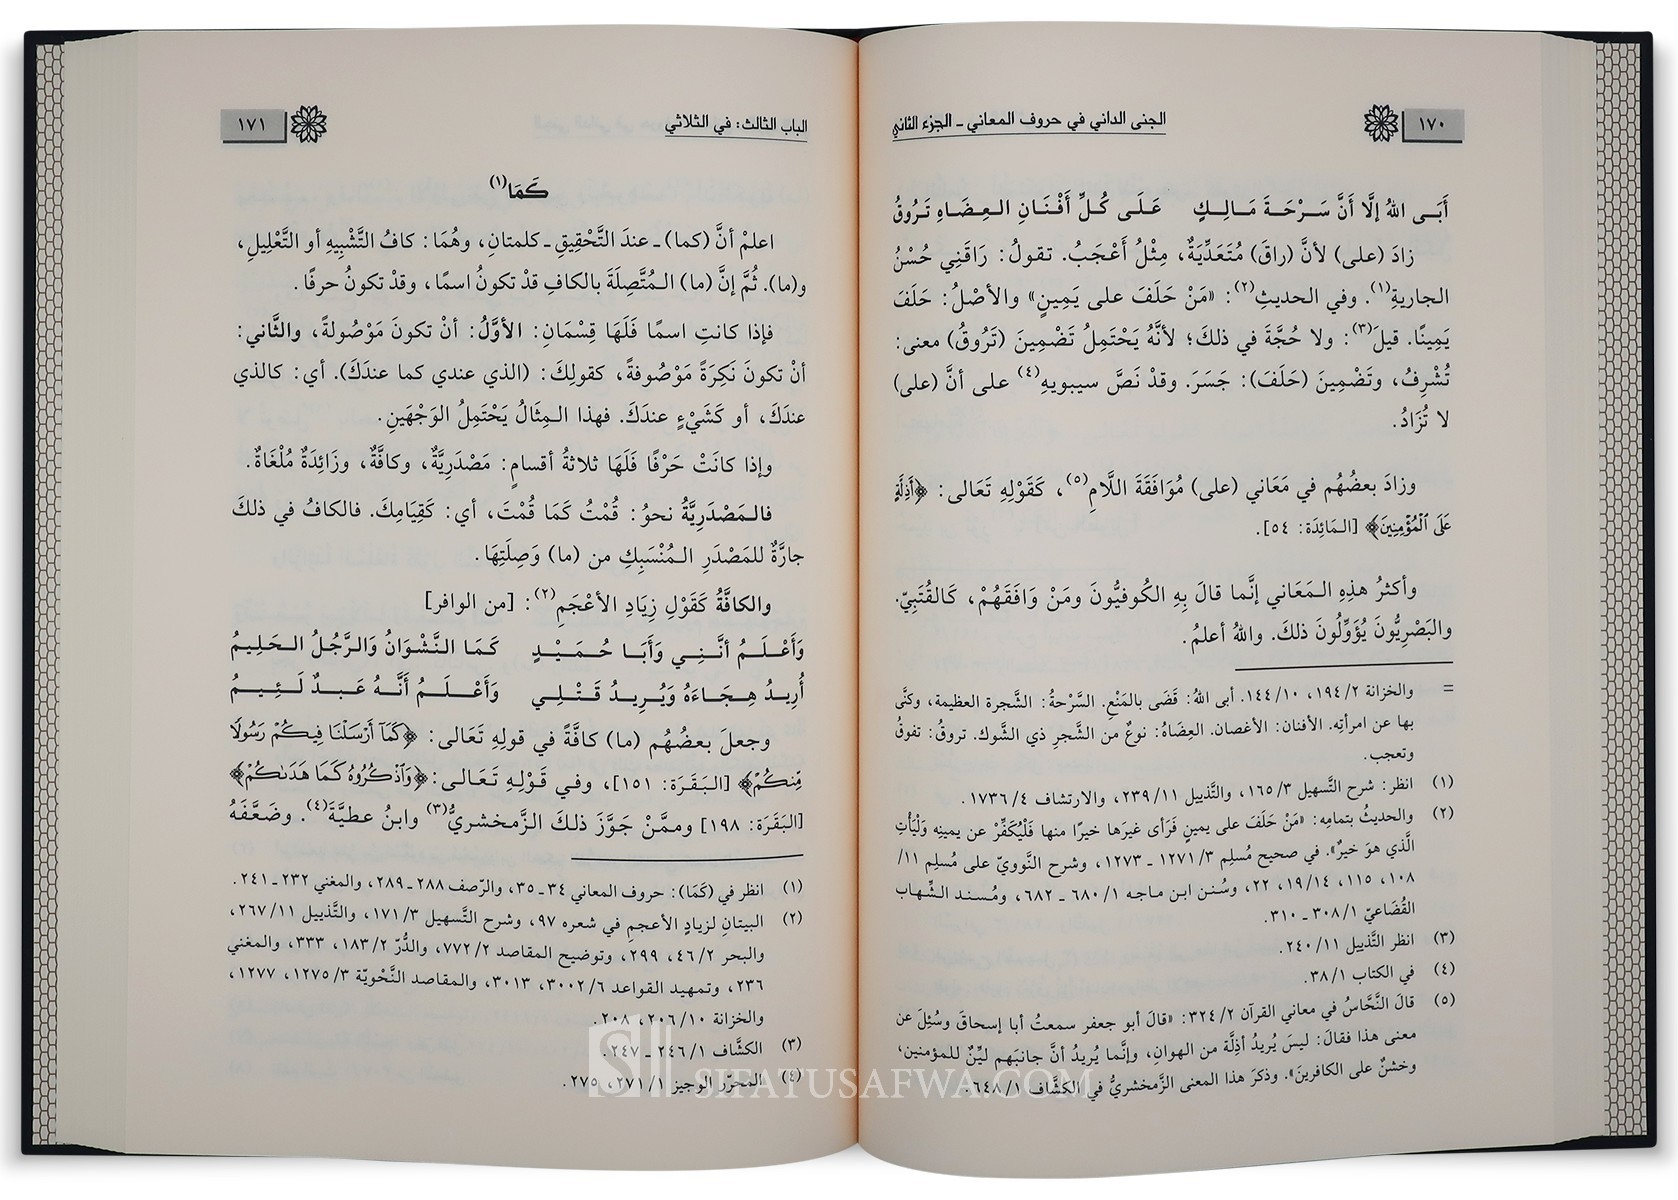 ١٧٠
الجنى الداني في حروف المعاني ـ الجزء الثاني
أَبَـى اللهُ إلَّا أَنَّ سَـرْحَـةَ مَـالِـكٍ عَـلَـى كُـلِّ أَفْـنَـانِ الـعِـضَـاهِ تَـرُوقُ
زادَ (على) لأنَّ (راقَ) مُتَعَدِّيَةٌ، مِثْلُ أَعْجَبُ. تقولُ: رَاقَنِي حُسْنُ
الجاريةِ(١). وفي الحديثِ(٢): «مَنْ حَلَفَ على يَمِينٍ» والأصْلُ: حَلَفَ
يَمِينًا. قيلَ(٣): ولا حُجَّةَ في ذلكَ؛ لأنَّهُ يَحْتَمِلُ تَضْمِينَ (تَرُوقُ) معنى:
تُشْرِفُ، وتَضْمِينَ (حَلَفَ): جَسَرَ. وقدْ نَصَّ سيبويهِ(٤) على أنَّ (على)
لا تُزَادُ.
وزادَ بعضُهُم في مَعَاني (على) مُوَافَقَةَ اللَّامِ(٥)، كَقَوْلِهِ تَعَالى: ﴿أَذِلَّةٍ
عَلَى ٱلْمُؤْمِنِينَ﴾ [الـمَائِدَة: ٥٤].
وأكثرُ هذِهِ الـمَعَاني إنَّما قالَ بِهِ الكُوفيُّونَ ومَنْ وَافَقَهُمْ، كَالقُتَبِيِّ.
والبَصْرِيُّونَ يُؤَوِّلُونَ ذلكَ. واللهُ أعلمُ.
= والخزانة ١٩٤/٢، ١٤٤/١٠. أبى اللهُ: قَضَى بالمَنْعِ. السَّرْحَةُ: الشَّجرة العظيمة، وكنَّى
بها عن امرأتِه. الأفنان: الأغصان. العِضَاهُ: نوعٌ من الشَّجرِ ذي الشَّوك. تروقُ: تفوقُ
وتعجب.
(١) انظر: شرح التَّسهيل ١٦٥/٣، والتَّذييل ٢٣٩/١١، والارتشاف ١٧٣٦/٤.
(٢) والحديثُ بتمامِه: «مَنْ حَلَفَ على يمينٍ فَرَأى غيرَها خيرًا منها فَلْيُكَفِّرْ عن يمينِه وَلْيَأْتِ
الَّذي هوَ خيرٌ». في صحيح مُسلِم ١٢٧١/٣ ـ ١٢٧٣، وشرح النَّوويّ على مُسلِم ١١/
١٠٨، ١١٥، ١٩/١٤، ٢٢، وسُنن ابن ماجه ٦٨٠/١ ـ ٦٨٢، ومُسند الشِّهاب
القُضَاعيّ ٣٠٨/١ ـ ٣١٠.
(٣) انظر التَّذييل ٢٤٠/١١.
(٤) في الكتاب ٣٨/١.
(٥) قالَ النَّحَّاسُ في معاني القرآن ٣٢٤/٢: «قالَ أبو جعفر سمعتُ أبا إسحاقَ وسُئِلَ عن
معنى هذا فقالَ: ليسَ يُريدُ أذِلَّة من الهوانِ، وإنَّما يُريدُ أنَّ جانبَهم ليِّنٌ للمؤمنين،
وخشنٌ على الكافرينَ». وذكرَ هذا المعنى الزَّمخشريُّ في الكشَّاف ٦٤٨/١.
الباب الثالث: في الثلاثي
١٧١
كَمَا(١)
اعلمْ أنَّ (كما) ـ عندَ التَّحْقِيقِ ـ كلمتانِ، وهُمَا: كافُ التَّشْبِيهِ أو التَّعْلِيلِ،
و(ما). ثُمَّ إنَّ (ما) الـمُتَّصِلَةَ بالكافِ قدْ تكونُ اسمًا، وقدْ تكونُ حرفًا.
فإذا كانتِ اسمًا فَلَهَا قِسْمَانِ: الأوَّلُ: أنْ تكونَ مَوْصُولةً، والثَّاني:
أنْ تكونَ نَكِرَةً مَوْصُوفةً، كقولِكَ: (الذي عندي كما عندَكَ). أي: كالذي
عندَكَ، أو كَشَيْءٍ عندَكَ. فهذا الـمِثَالُ يَحْتَمِلُ الوَجْهَينِ.
وإذا كانَتْ حَرْفًا فَلَهَا ثلاثةُ أقسامٍ: مَصْدَرِيَّةٌ، وكافَّةٌ، وزَائِدَةٌ مُلْغَاةٌ.
فالـمَصْدَرِيَّةُ نحوُ: قُمْتُ كَمَا قُمْتَ، أي: كَقِيَامِكَ. فالكافُ في ذلكَ
جارَّةٌ للمَصْدَرِ الـمُنْسَبِكِ من (ما) وَصِلَتِهَا.
والكافَّةُ كَقَوْلِ زِيَادٍ الأعْجَمِ(٢): [من الوافر]
وَأَعْـلَـمُ أنَّـنِـي وَأَبَـا حُـمَـيْـدٍ كَمَا النَّشْوَانُ وَالرَّجُلُ الحَلِيمُ
أُرِيـدُ هِـجَـاءَهُ وَيُـرِيـدُ قَـتْـلِـي وَأَعْـلَـمُ أَنَّـهُ عَـبْـدٌ لَـئِـيـمُ
وجعلَ بعضُهُم (ما) كافَّةً في قولِهِ تَعَالى: ﴿كَمَآ أَرْسَلْنَا فِيكُمْ رَسُولًا
مِّنكُمْ﴾ [البَقَرَة: ١٥١]، وفي قَوْلِهِ تَعَالى: ﴿وَٱذْكُرُوهُ كَمَا هَدَىٰكُمْ﴾
[البَقَرَة: ١٩٨] وممَّنْ جَوَّزَ ذلكَ الزَّمخشريُّ(٣) وابنُ عطيَّةَ(٤). وضَعَّفَهُ
(١) انظر في (كَمَا): حروف المعاني ٣٤ ـ ٣٥، والرّصف ٢٨٨ ـ ٢٨٩، والمغني ٢٣٢ ـ ٢٤١.
(٢) البيتانِ لزيادٍ الأعجمِ في شعره ٩٧، وشرح التَّسهيل ١٧١/٣، والتَّذييل ٢٦٧/١١،
والبحر ٤٦/٢، ٢٩٩، وتوضيح المقاصد ٧٧٢/٢، والدُّرّ ١٨٣/٢، ٣٣٣، والمغني
٢٣٦، وتمهيد القواعد ٣٠٠٢/٦، ٣٠١٣، والمقاصد النَّحْويّة ١٢٧٥/٣، ١٢٧٧،
والخزانة ٢٠٦/١٠، ٢٠٨.
(٣) الكشَّاف ٢٤٦/١ ـ ٢٤٧.
(٤) المحرّر الوجيز ٢٧١/١، ٢٧٥.
SIFATUSAFWA.COM